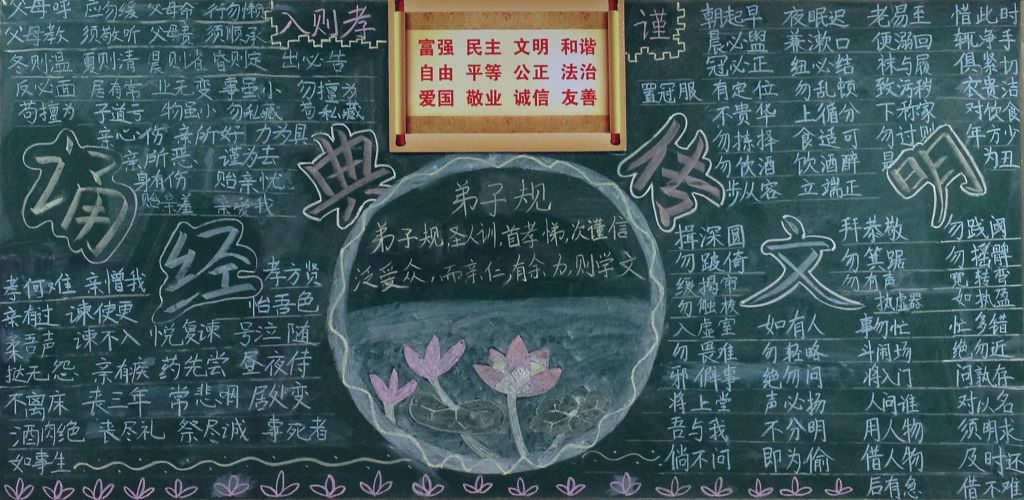 父母呼 应勿缓 父母命 行勿懒
父母教 须敬听 父母责 须顺承
冬则温 夏则凊 晨则省 昏则定 出必告
反必面 居有常 业无变 事虽小 勿擅为
苟擅为 子道亏 物虽小 勿私藏 苟私藏
亲心伤 亲所好 力为具
亲所恶 谨为去
身有伤 贻亲忧
贻亲羞 亲爱我
孝何难 亲憎我 孝方贤
亲有过 谏使更 怡吾色
柔吾声 谏不入 悦复谏 号泣随
挞无怨 亲有疾 药先尝 昼夜侍
不离床 丧三年 常悲咽 居处变
酒肉绝 丧尽礼 祭尽诚 事死者
如事生
入则孝
诵
经
典
富强 民主 文明 和谐
自由 平等 公正 法治
爱国 敬业 诚信 友善
弟子规
弟子规,圣人训,首孝悌,次谨信
泛爱众,而亲仁,有余力,则学文
传
文
明
谨
朝起早 夜眠迟 老易至 惜此时
晨必盥 兼漱口 便溺回 辄净手
冠必正 纽必结 袜与履 俱紧切
置冠服 有定位 勿乱顿 致污秽 衣贵洁
不贵华 上循分 下称家 对饮食
勿拣择 食适可 勿过则 年方少
勿饮酒 饮酒醉 最为丑
步从容 立端正
揖深圆 拜恭敬 勿践阈
勿跛倚 勿箕踞 勿摇髀
缓揭帘 勿有声 宽转弯
勿触棱 执虚器 如执盈
入虚室 如有人 事勿忙 忙多错
勿畏难 勿轻略 斗闹场 绝勿近
邪僻事 绝勿问 将入门 问孰存
将上堂 声必扬 人问谁 对以名
吾与我 不分明 用人物 须明求
倘不问 即为偷 借人物 及时还
后有急 借不难